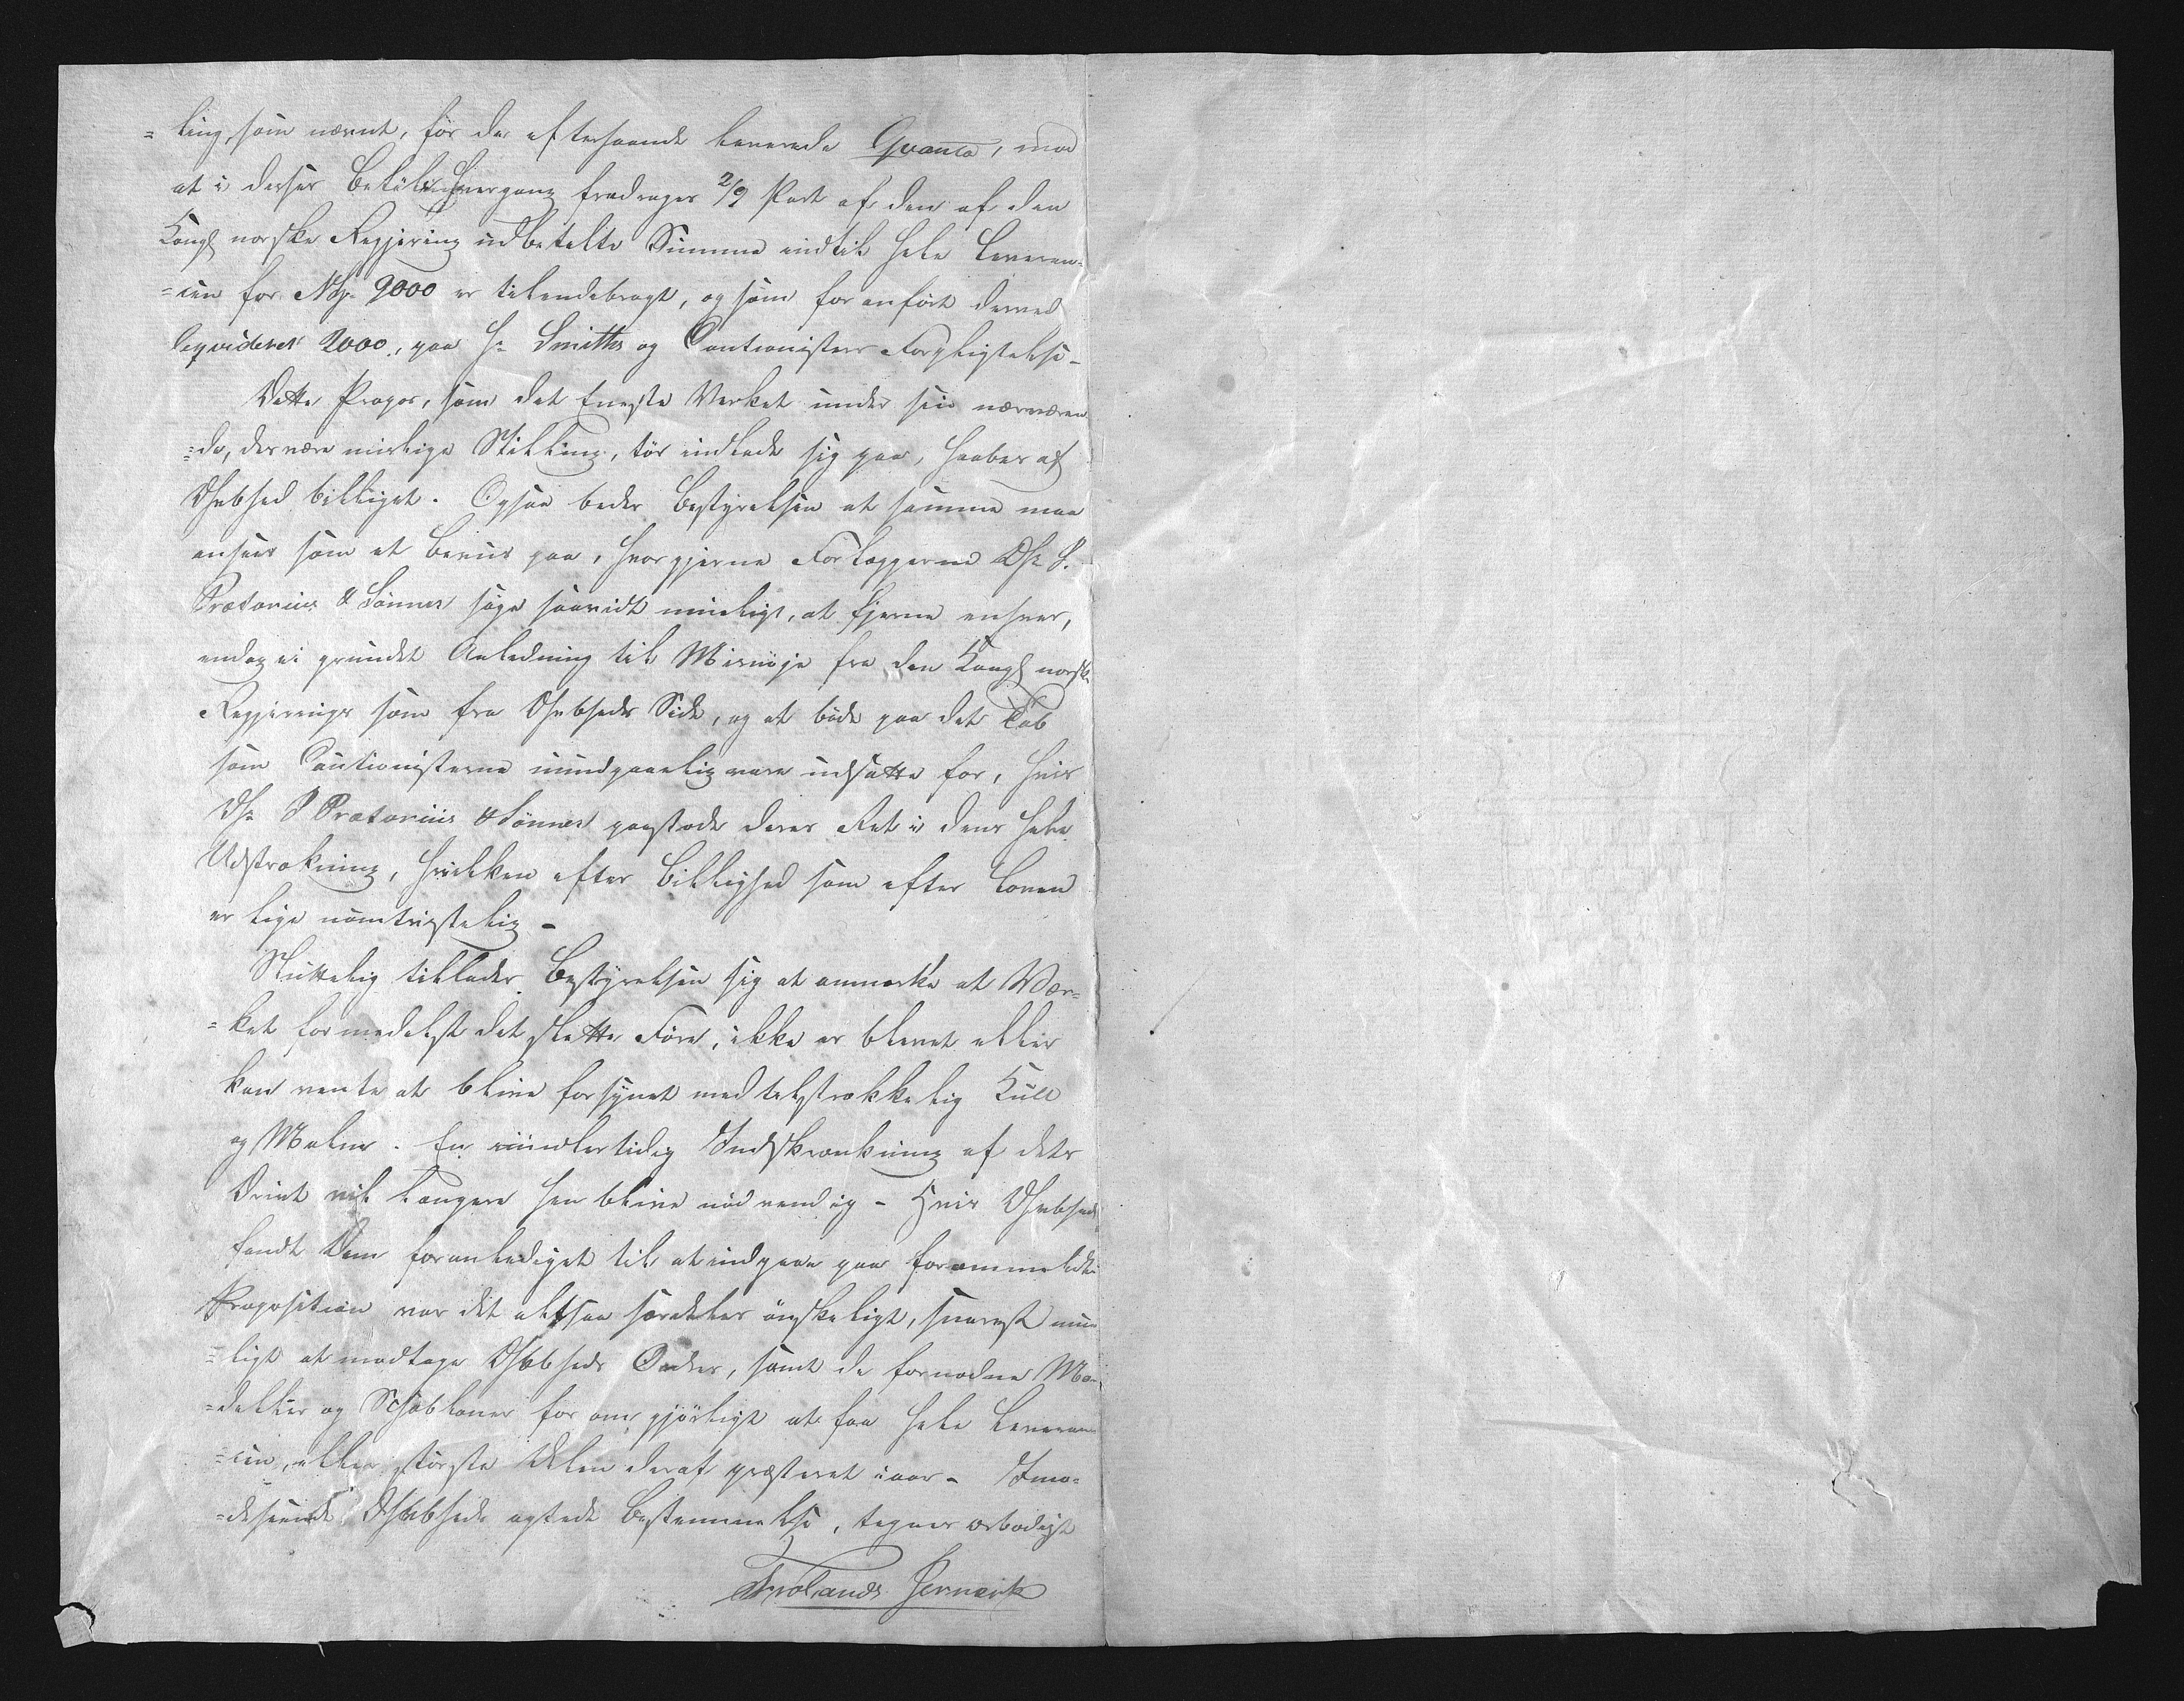 = ling, som nævnt, for de efterhaande leverede Qvanta, mod
at i disses Beløb hvergang fradrages 2/9 Part af den af den
Kongl norske Regjering udbetalte Summa indtil hele Leveren¬
=cen for Nby. 9000 er tilendebragt, og som for anført derved
leqvideret 2000, paa Hr Smiths og Cautionisters Forpligtelse_
Dette Propos, som det Eneste Værket under sin nærværen
=de, desværre mislige Stilling, tør indlade sig paa, haabes af
Dhrbhed billiget. Ogsaa beder Bestyrelsen at samme maa
ansees som et Beviis paa, hvor gjerne Forlæggerne DHr P.
Prætorius & Sønner søge saavidt mueligt, at fjerne enhver,
endog ei grundet Anledning til Misnøje fra den Kongl norske
Regjerings som fra Dhrbheds Side, og at bøde paa det Tab
som Cautionisterne uundgaaelig vare udsatte for, hvis
DHr P Prætorius & Sønner paastode deres Ret i dens hele
Udstrækning, hvilken efter Billighed som efter Loven
er lige uomtvistelig –
Sluttelig tillader Bestyrelsen sig at anmærke at Vær¬
=ket formedelst det slette Føre, ikke er blevet eller
kan vente at blive forsynet med tilstrækkelig Kull
og Malm. En imidlertidig Indskrænkning af dets
Drivt vil længere hen blive nødvendig – Hvis Dhrbhed
fandt Dem foranlediget til at indgaae paa forommeldte
Proposition var det altsaa særdeles ønskeligt, snarest mue
=ligt at modtage Dhrbheds Ordre, samt de fornødne Mo¬
=deller og Schabloner for om gjørligt at faa hele Leveran
=cen, eller største Delen deraf præsteret i aar – Imø¬
=deseende Dhrbheds agtede Bestemmelse, tegner ærbødigst
Frolands Jernverk